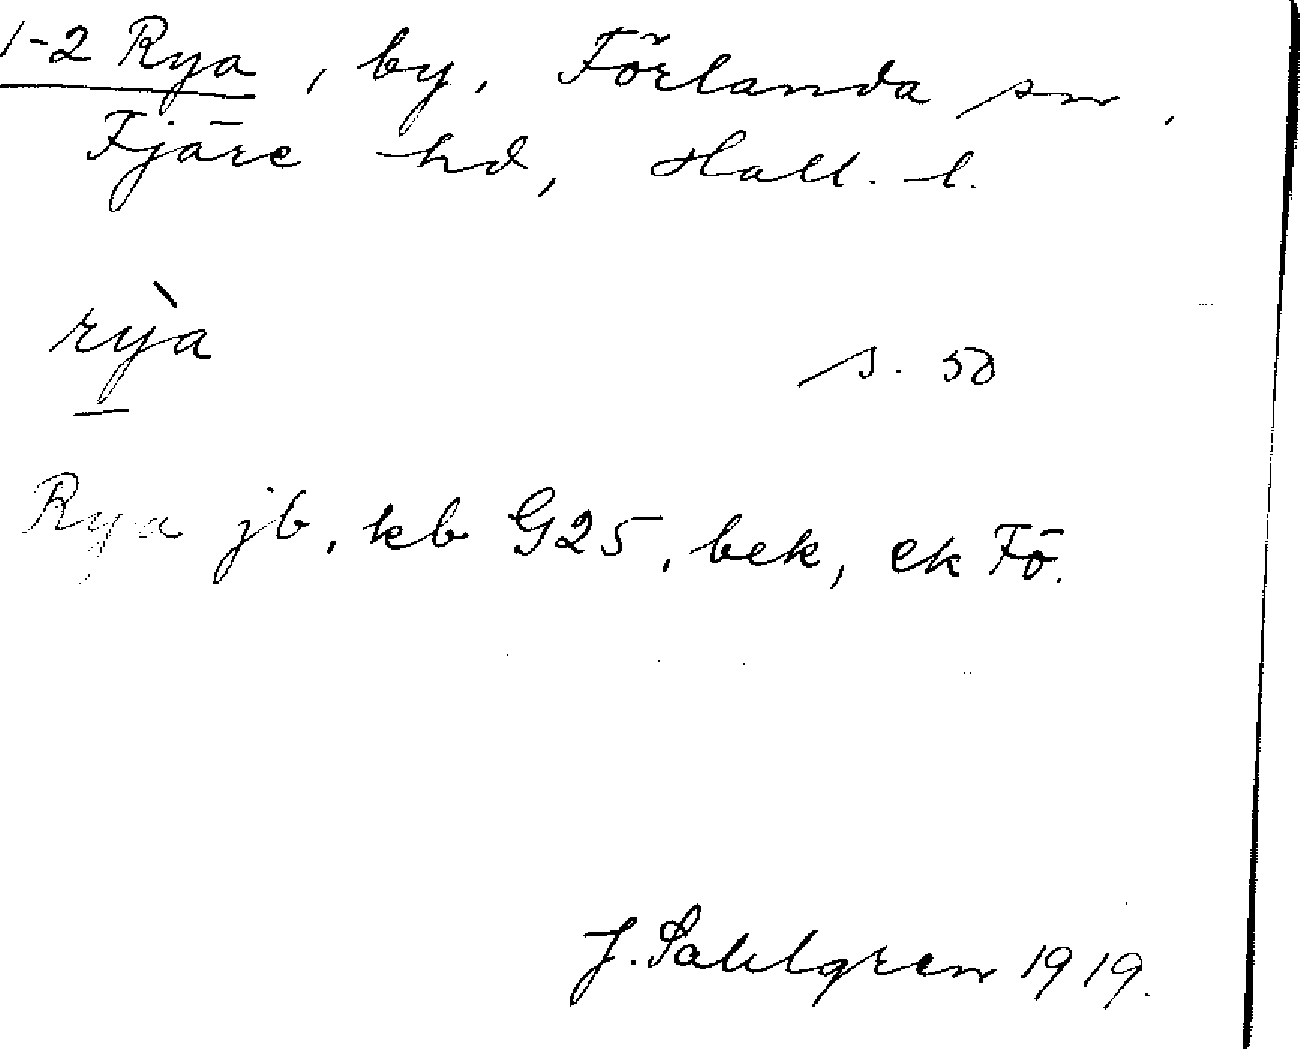 1-2 Rya, by, Förlanda sn,
Fjäre hd, Hall. l.
rỳa s. 50
Rya jb, kb G25, bek, ek Fö.
J. Sahlgren 1919.